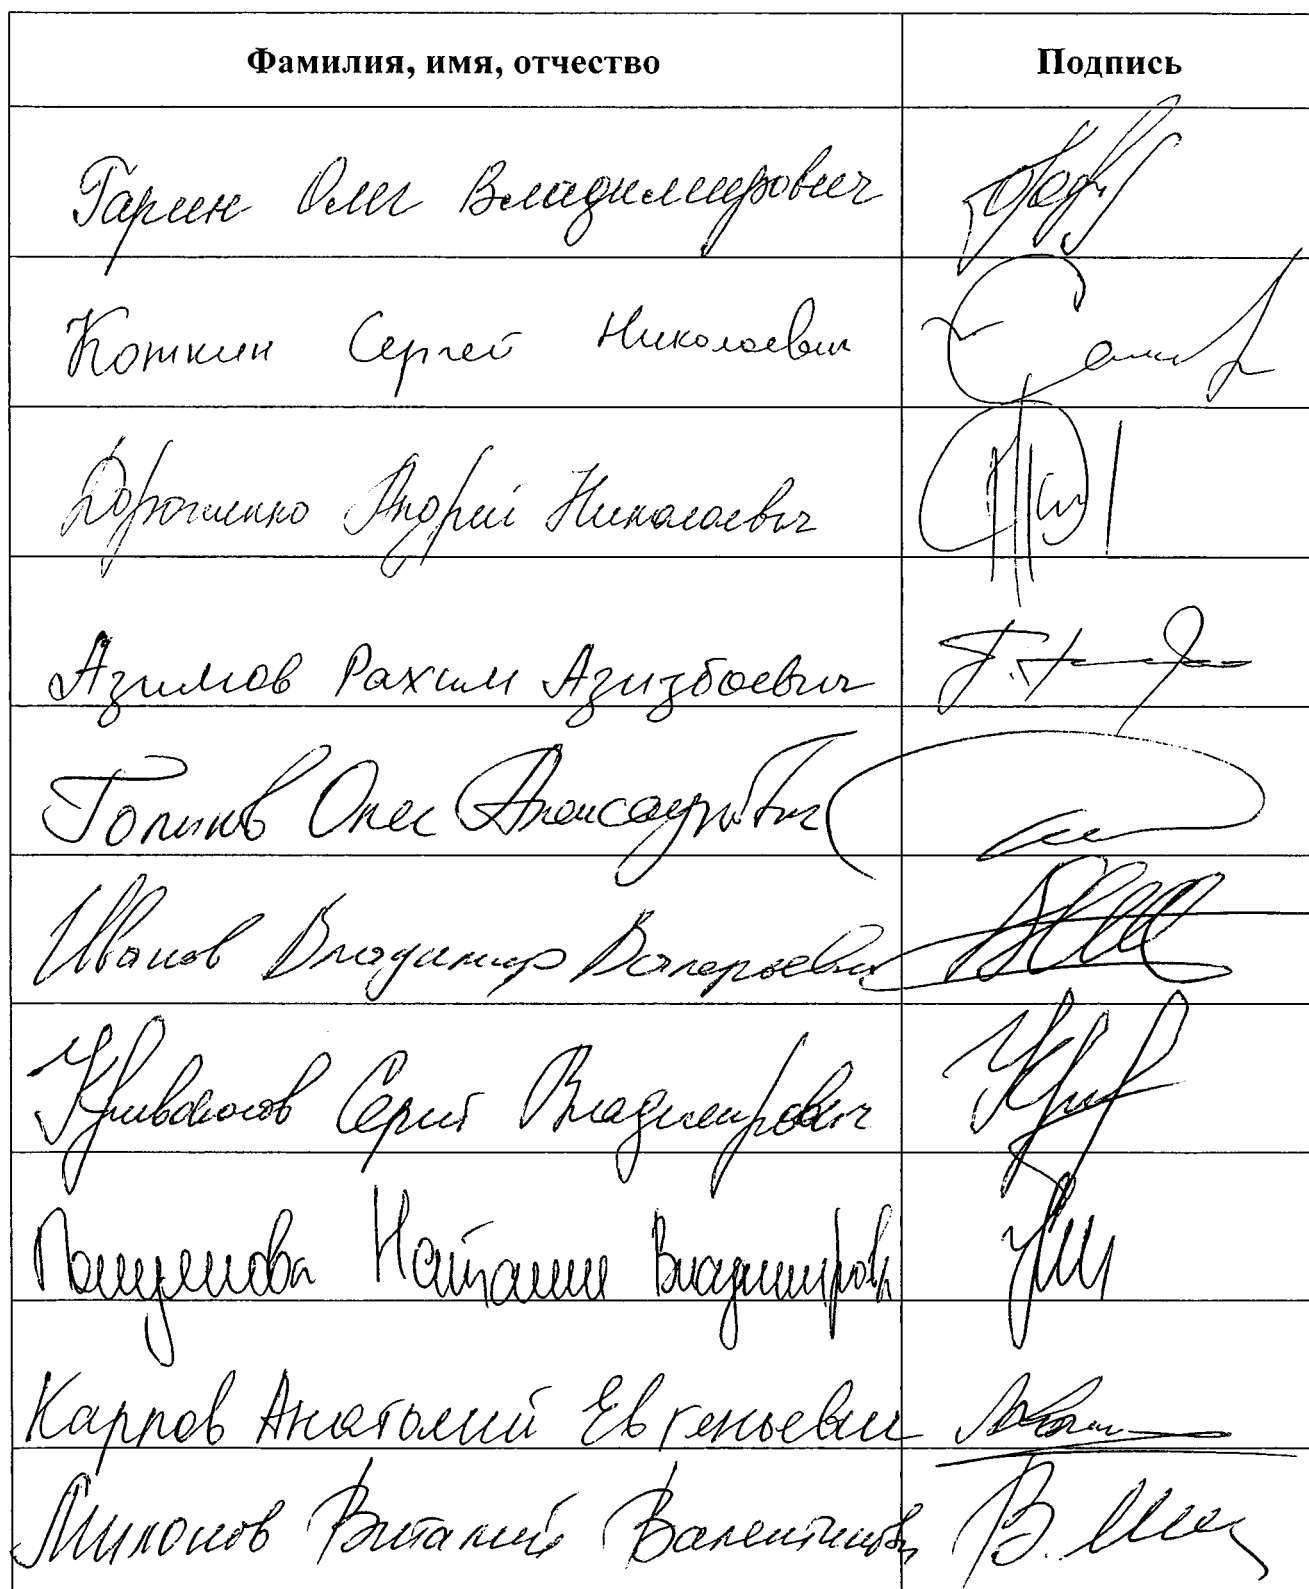 Фамилия, имя, отчество Подпись
Гарин Олег Владимирович
Кошкин Сергей Николаевич
Дорошенко Андрей Николаевич
Азимов Рахим Азизбоевич
Голиков Олег Александрович
Иванов Владимир Валерьевич
Сергей Владимирович
Наталия Владимировна
Карпов Анатолий Евгеньевич
Милонов Виталий Валентинович В.